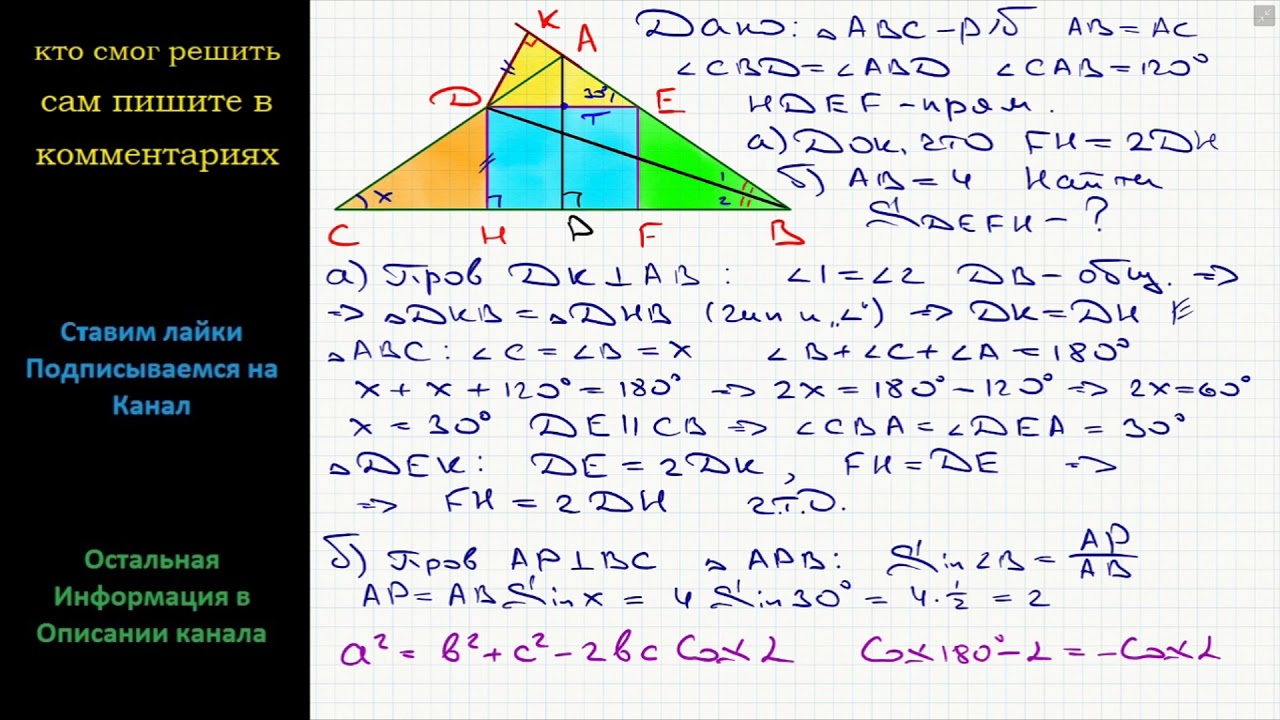 кто смог решить
сам пишите в
комментариях
Ставим лайки
Подписываемся на
Канал
Остальная
Информация в
Описании канала
K
A
D
30°
E
T
x
1
2
C
H
P
F
B
Дано: △ABC – р/б AB = AC
∠CBD = ∠ABD ∠CAB = 120°
HDEF – прям.
а) Док, что FH = 2DH
б) AB = 4 Найти
S DEFH – ?
а) Пров DK ⊥ AB : ∠1 = ∠2 DB – общ. ⇒
⇒ △DKB = △DHB (гип и „∠“) ⇒ DK = DH
△ABC : ∠C = ∠B = x ∠B + ∠C + ∠A = 180°
x + x + 120° = 180° ⇒ 2x = 180° – 120° ⇒ 2x = 60°
x = 30° DE || CB ⇒ ∠CBA = ∠DEA = 30°
△DEK : DE = 2DK , FH = DE ⇒
⇒ FH = 2DH ч.т.д.
б) Пров AP ⊥ BC △APB : Sin∠B = AP/AB
AP = AB Sin x = 4 Sin30° = 4 · 1/2 = 2
a² = b² + c² – 2bc Cos∠ Cos180° – ∠ = –Cos∠